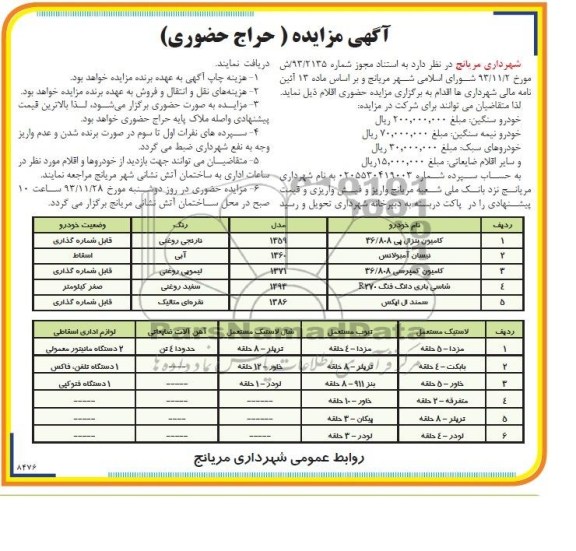 آگهی مزایده ( حراج حضوری)
شهرداری مریانج در نظر دارد به استناد مجوز شماره ۹۳/۲۱۳۵/ش
مورخ ۹۳/۱۱/۲ شورای اسلامی شهر مریانج و بر اساس ماده ۱۳ آئین
نامه مالی شهرداری ها اقدام به برگزاری مزایده حضوری اقلام ذیل نماید.
لذا متقاضیان می توانند برای شرکت در مزایده:
خودرو سنگین: مبلغ ۲۰۰,۰۰۰,۰۰۰ ریال
خودرو نیمه سنگین: مبلغ ۷۰,۰۰۰,۰۰۰ ریال
خودروهای سبک: مبلغ ۳۰,۰۰۰,۰۰۰ ریال
و سایر اقلام ضایعاتی: مبلغ ۱۵,۰۰۰,۰۰۰ریال
به حساب سپرده شماره ۰۲۰۵۵۳۰۴۱۹۰۰۳ به نام شهرداری
مریانج نزد بانک ملی شعبه مریانج واریز و فیش واریزی و قیمت
پیشنهادی را در پاکت دربسته به دبیرخانه شهرداری تحویل و رسید
دریافت نمایند.
۱- هزینه چاپ آگهی به عهده برنده مزایده خواهد بود.
۲- هزینه‌های نقل و انتقال و فروش به عهده برنده مزایده خواهد بود.
۳- مزایده به صورت حضوری برگزار می‌شود، لذا بالاترین قیمت
پیشنهادی واصله ملاک پایه حراج حضوری خواهد بود.
۴- سپرده های نفرات اول تا سوم در صورت برنده شدن و عدم واریز
وجه به نفع شهرداری ضبط می گردد.
۵- متقاضیان می توانند جهت بازدید از خودروها و اقلام مورد نظر در
ساعات اداری به ساختمان آتش نشانی شهر مریانج مراجعه نمایند.
۶- مزایده حضوری در روز دوشنبه مورخ ۹۳/۱۱/۲۸ ساعت ۱۰
صبح در محل ساختمان آتش نشانی مریانج برگزار می گردد.
ردیف نام خودرو مدل رنگ وضعیت خودرو
۱ کامیون بنزال پی ۳۶/۸۰۸ ۱۳۵۹ نارنجی روغنی قابل شماره گذاری
۲ نیسان آمبولانس ۱۳۶۰ آبی اسقاط
۳ کامیون کمپرسی ۳۶/۸۰۸ ۱۳۷۱ لیمویی روغنی قابل شماره گذاری
۴ شاسی باری دانگ فنگ R۲۷۰ ۱۳۹۳ سفید روغنی صفر کیلومتر
۵ سمند ال ایکس ۱۳۸۶ نقره‌ای متالیک قابل شماره گذاری
ردیف لاستیک مستعمل تیوپ مستعمل شال لاستیک مستعمل آهن آلات ضایعاتی لوازم اداری اسقاطی
۱ مزدا - ۵ حلقه مزدا - ۴ حلقه تریلر - ۸ حلقه حدودا ۴ تن ۲ دستگاه مانیتور معمولی
۲ بابکت - ۴ حلقه تریلر - ۸ حلقه خاور - ۱۲ حلقه ---- ۱ دستگاه تلفن، فاکس
۳ خاور - ۵ حلقه بنز ۹۱۱ - ۸ حلقه لودر - ۱ حلقه ----- ۱ دستگاه فتوکپی
۴ متفرقه - ۲ حلقه خاور - ۱۰ حلقه ------ ----- -----
۵ تریلر - ۸ حلقه پیکان - ۳ حلقه ----- ---- -----
۶ لودر - ۴ حلقه لودر - ۳ حلقه ----- ----- -----
روابط عمومی شهرداری مریانج
۸۴۷۶